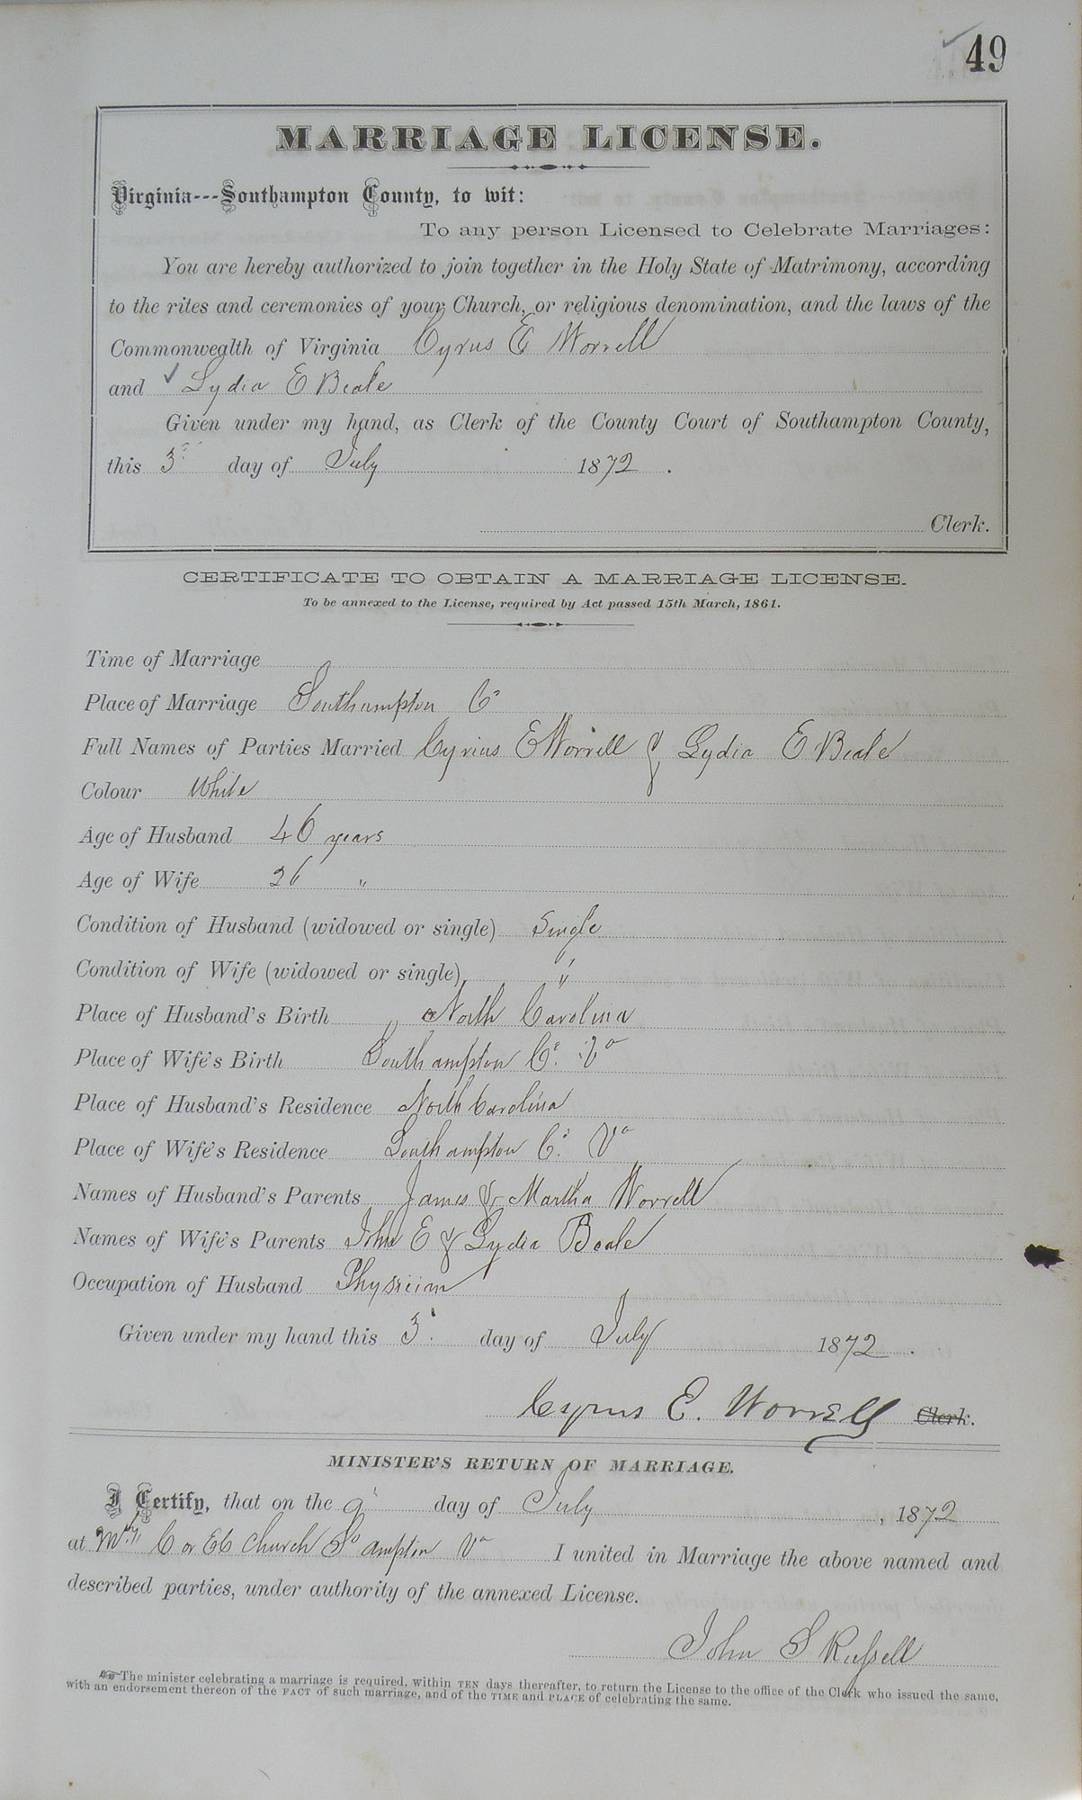 49
MARRIAGE LICENSE.
Virginia---Southampton County, to wit:
To any person Licensed to Celebrate Marriages:
You are hereby authorized to join together in the Holy State of Matrimony, according
to the rites and ceremonies of your Church, or religious denomination, and the laws of the
Commonwealth of Virginia Cyrus E Worrell
and ✓ Lydia E Beale
Given under my hand, as Clerk of the County Court of Southampton County,
this 3d day of July 1872.
Clerk.
CERTIFICATE TO OBTAIN A MARRIAGE LICENSE.
To be annexed to the License, required by Act passed 15th March, 1861.
Time of Marriage
Place of Marriage Southampton Co
Full Names of Parties Married Cyrius E Worrell & Lydia E Beale
Colour White
Age of Husband 46 years
Age of Wife 26 "
Condition of Husband (widowed or single) Single
Condition of Wife (widowed or single) "
Place of Husband's Birth North Carolina
Place of Wife's Birth Southampton Co. Va
Place of Husband's Residence North Carolina
Place of Wife's Residence Southampton Co. Va
Names of Husband's Parents James & Martha Worrell
Names of Wife's Parents John E & Lydia Beale
Occupation of Husband Physician
Given under my hand this 3d day of July 1872.
Cyrus E. Worrell Clerk.
MINISTER'S RETURN OF MARRIAGE.
I Certify, that on the 9 day of July, 1872
at Church So ampton Va I united in Marriage the above named and
described parties, under authority of the annexed License.
John S Russell
The minister celebrating a marriage is required, within TEN days thereafter, to return the License to the office of the Clerk who issued the same,
with an endorsement thereon of the FACT of such marriage, and of the TIME and PLACE of celebrating the same.